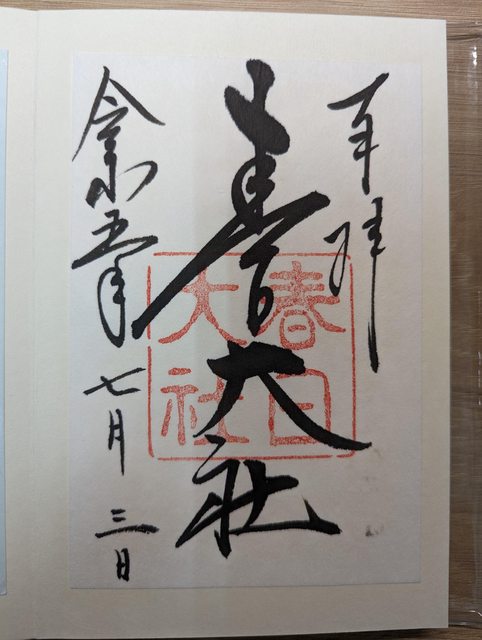 奉拝
春日大社
春日
大社
令和五年七月三日